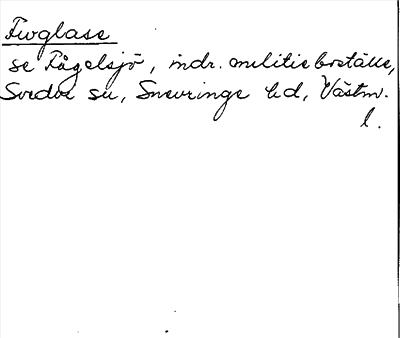 Fwglase
se Fågelsjö, indr. militieboställe,
Svedvi sn, Snevringe hd, Västm.
l.